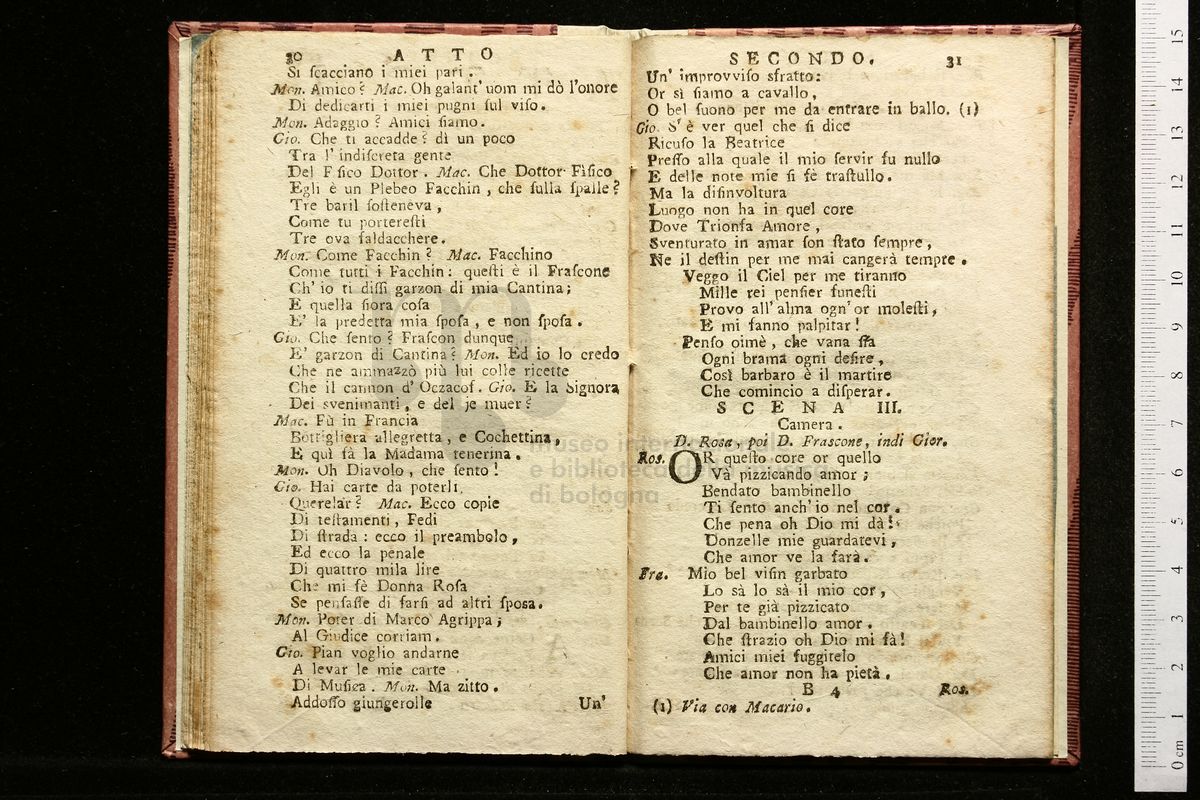 30 ATTO
Si ſcacciano i miei pari.
Mon. Amico? Mac. Oh galant' uom mi dò l'onore
Di dedicarti i miei pugni ſul viſo.
Mon. Adaggio? Amici ſiamo.
Gio. Che ti accadde? dì un poco
Tra l' indiſcreta gente
Del Fiſico Dottor. Mac. Che Dottor Fiſico
Egli è un Plebeo Facchin, che ſulla ſpalle?
Tre baril ſoſteneva,
Come tu portereſti
Tre ova ſaldacchere.
Mon. Come Facchin? Mac. Facchino
Come tutti i Facchin: queſti è il Fraſcone
Ch' io ti diſſi garzon di mia Cantina;
E quella ſiora coſa
E' la predetta mia ſpoſa, e non ſpoſa.
Gio. Che ſento? Fraſcon dunque
E' garzon di Cantina? Mon. Ed io lo credo
Che ne ammazzò più lui colle ricette
Che il cannon d' Oczacof. Gio. E la Signora
Dei svenimanti, e del je muer?
Mac. Fù in Francia
Bottigliera allegretta, e Cochettina,
E quì fà la Madama tenerina.
Mon. Oh Diavolo, che ſento!
Gio. Hai carte da poterli
Querelar? Mac. Ecco copie
Di teſtamenti, Fedi
Di ſtrada: ecco il preambolo,
Ed ecco la penale
Di quattro mila lire
Che mi fè Donna Roſa
Se penſaſſe di farſi ad altri ſpoſa.
Mon. Poter di Marco Agrippa;
Al Giudice corriam.
Gio. Pian voglio andarne
A levar le mie carte
Di Muſica. Mon. Ma zitto.
Addoſſo giungerolle Un'
SECONDO. 31
Un' improvviſo sfratto:
Or sì ſiamo a cavallo,
O bel ſuono per me da entrare in ballo. (1)
Gio. S' è ver quel che ſi dice
Ricuſo la Beatrice
Preſſo alla quale il mio ſervir fu nullo
E delle note mie ſi fè traſtullo.
Ma la diſinvoltura
Luogo non ha in quel core
Dove Trionfa Amore,
Sventurato in amar ſon ſtato ſempre,
Ne il deſtin per me mai cangerà tempre.
Veggo il Ciel per me tiranno
Mille rei penſier funeſti
Provo all'alma ogn'or moleſti,
E mi fanno palpitar!
Penſo oimè, che vana ſſa
Ogni brama ogni deſire,
Così barbaro è il martire
Che comincio a diſperar.
SCENA III.
Camera.
D. Rosa, poi D. Frascone, indi Gior.
Ros. OR queſto core or quello
Và pizzicando amor;
Bendato bambinello
Ti ſento anch'io nel cor.
Che pena oh Dio mi dà!
Donzelle mie guardatevi,
Che amor ve la farà.
Fra. Mio bel viſin garbato
Lo sà lo sà il mio cor,
Per te già pizzicato
Dal bambinello amor.
Che ſtrazio oh Dio mi fà!
Amici miei fuggitelo
Che amor non ha pietà.
B 4 Ros.
(1) Via con Macario.
museo internazionale
e biblioteca della musica
di bologna
15
14
13
12
11
10
9
8
7
6
5
4
3
2
1
0 cm